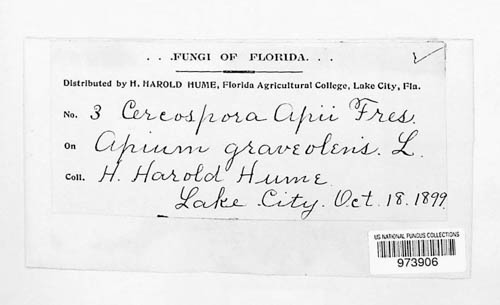 . . .FUNGI OF FLORIDA. . .
Distributed by H. HAROLD HUME, Florida Agricultural College, Lake City, Fla.
No. 3 Cercospora Apii Fres.
On Apium graveolens. L.
Coll. H. Harold Hume
Lake City. Oct. 18. 1899.
US NATIONAL FUNGUS COLLECTIONS
973906